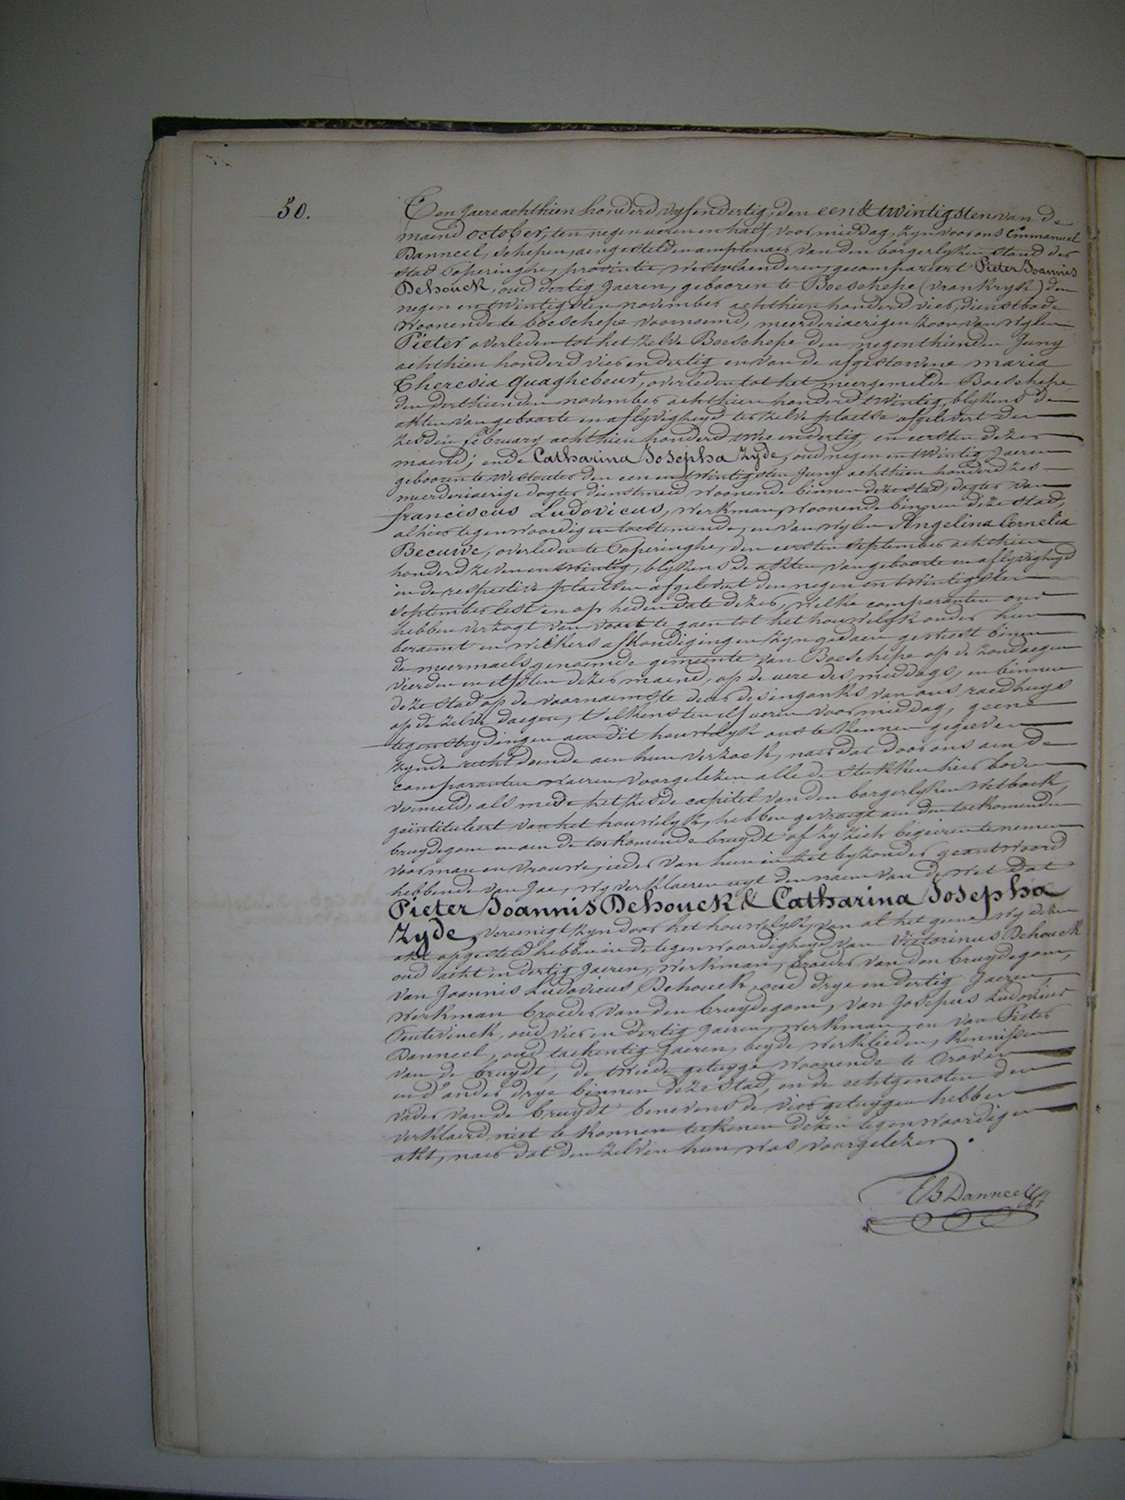 50.
Ten Jaere achthien honderd vyfendertig, den een & twintigsten van de
maend october, ten negen ueren en half voormiddag, zyn voor ons Emmanuel
Danneel, schepen, aengestelden amptenaer van den borgerlyken stand der
stad Poperinghe, provintie Westvlaenderen, gecompareert Pieter Joannis
Dehouck, oud dertig Jaeren, gebooren te Boeschepe (vrankryk) den
negen en twintigsten november achthien honderd vier, dienstbode
woonende te boeschepe voornoemd, meerderjaerigen zoon van wylen
Pieter overleden tot het zelve Boeschepe den negenthienden Juny
achthien honderd vier en dertig en van de afgestorvene maria
Theresia Quaghebeur, overleden tot het meergemelde Boeschepe,
den derthienden november achthien honderd twintig, blykens de
akten van geboorte en aflyvigheyd ter zelve plaetse afgelevert den
zesden february achthien honderd twee en dertig, en eersten dezer
maend; ende Catharina Josepha Zyde, oud negen en twintig Jaeren
gebooren te Westouter den een en twintigsten Juny achthien honderd zes
meerderjaerige dogter dienstmeid, woonende binnen deze stad, dogter van
franciscus Ludovicus, werkman, woonende binnen deze stad,
alhier tegenwoordig en toestemende, en van wylen Angelina Cornelia
Becuwe, overleden te Poperinghe, den eersten september achthien
honderd zeven en twintig, blykens de akten van geboorte en aflyvigheyd
in de respective plaetsen afgelevert den negen en twintigsten
september lest en op heden date dezer, welke comparanten ons
hebben verzogt van voort te gaen tot het houwelyk onder hun
beraemt en welkers afkondigingen zyn gedaen geweest binnen
de meermaels genoemde gemeente van Boeschepe op de zondagen
vierden en elfsten dezer maend, op de uere des middags, en binnen
deze stad op de voornaemste deur des inganks van ons raedhuys
op de zelve dagen, t'elkens ten elf ueren voormiddag, geene
tegenstrydingen aen dit houwelyk ons te kennen gegeven
zynde recht doende aen hun verzoek, naer dat door ons aen de
comparanten waeren voorgelezen alle de stukken hier boven
vermeld, als mede het zesde capitel van den borgerlyken Wetboek,
geïntituleert van het houwelyk, hebben gevraegt aen den toekomenden
bruydegom en aen de toekomende bruydt of zy zich begeiren te nemen
voor man en vrouwe, ieder van hun in het byzonder geantwoord
hebbende van Jae, wy verklaeren uyt den naem van de wet Dat
Pieter Joannis Dehouck & Catharina Josepha
Zyde, vereenigt zyn door het houwelyk, van al het geene wy dezen
akt opgesteld hebben in de tegenwoordigheyd van Victorinus Dehouck
oud acht en dertig Jaeren, werkman, broeder van den bruydegom,
van Joannis Ludovicus Dehouck, oud drye en dertig Jaeren,
werkman broeder van den bruydegom, van Josephus Ludovicus
oud vier en dertig Jaeren, werkman en van Pieter
Danneel, oud tachentig Jaeren, beyde werklieden, kennissen
van de bruydt, de tweede getuyge woonende te Croix
end'ander drye binnen deze stad, en de echtgenoten den
vader van de bruydt benevens de vier getuygen hebben
verklaerd niet te konnen teekenen dezen tegenwoordigen
akt, naer dat den zelven hun was voorgelezen.
EBDanneel